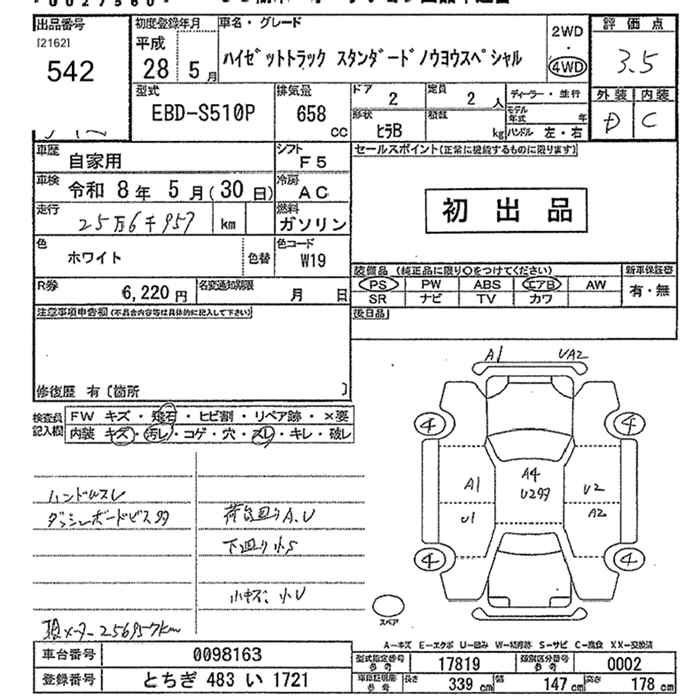 出品番号
[2162]
542
初度登録年月
平成
28年5月
車名・グレード
ハイゼットトラック スタンダードノウヨウスペシャル
2WD
・
4WD
評価点
3.5
外装 内装
D C
型式
EBD-S510P
排気量
658
CC
ドア
2
定員
2人
形状
ヒラB
積載
kg
ディーラー・並行
モデル年式 年
ハンドル 左・右
車歴
自家用
シフト
F5
車検
令和 8年 5月(30日)
冷房
AC
走行
25万6千957 km
燃料
ガソリン
色
ホワイト
色替
色コード
W19
R券
6,220円
名変通知期限
月 日
セールスポイント(正常に機能するものに限ります)
初出品
装備品 (純正品に限り○をつけてください)
新車保証書
PS PW ABS エアB AW
SR ナビ TV カワ
有・無
後日品
注意事項申告欄(不具合内容等は具体的に記入して下さい)
修復歴 有〔箇所 〕
検査員
記入欄
FW キズ・飛石・ヒビ割・リペア跡・×要
内装 キズ・汚レ・コゲ・穴・スレ・キレ・破レ
ハンドルスレ
ダッシュボードビス穴
荷台回りA、U
下回り小S
小キズ、小U
現メーター256957km
A1 UA2
4 4
A1
U1
A4
U2
A2
4 4
スペア
A-キズ E-エクボ U-凹み W-補修跡 S-サビ C-腐食 XX-交換済
車台番号 0098163
登録番号 とちぎ 483 い 1721
型式指定番号
参考
17819
類別区分番号
参考
0002
車検証明席
参考
長さ 339 cm
幅 147 cm
高さ 178 cm